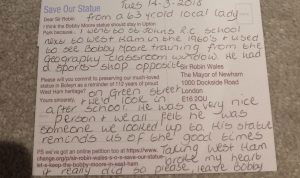 Tues 14-3-2018
Save Our Statue
from a 63 year old local lady
Dear Sir Robin
I think the Bobby Moore statue should stay in Upton
Park because: I went to St. R.C school
next to West Ham in the 1960s + used
to see Bobby Moore training from the
Geography classroom window. He had
a sports shop opposite
Sir Robin Wales
Please will you commit to preserving our much-loved
The Mayor of Newham
statue in Boleyn as a reminder of 112 years of proud
1000 Dockside Road
West Ham heritage?
on Green Street
London
Yours sincerely,
+ we'd look in
E16 2QU
after school. He was a very nice
person + we all felt he was
someone we looked up to. His statue
reminds us of the good times
PS we've got an online petition too at https://www.
Taking West Ham
change.org/p/sir-robin-wales-s-o-s-save-our-statue-
let-s-keep-the-bobby-moore-in-east-ham
broke my heart
it really did so please leave Bobby